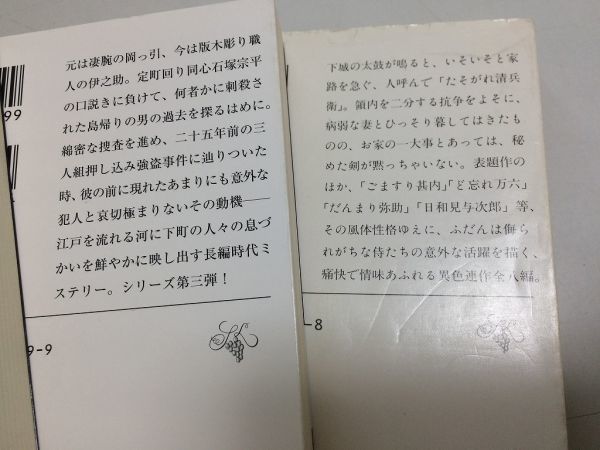 元は凄腕の岡っ引、今は版木彫り職
人の伊之助。定町回り同心石塚宗平
の口説きに負けて、何者かに刺殺さ
れた島帰りの男の過去を探るはめに。
綿密な捜査を進め、二十五年前の三
人組押し込み強盗事件に辿りついた
時、彼の前に現れたあまりにも意外な
犯人と哀切極まりないその動機──
江戸を流れる河に下町の人々の息づ
かいを鮮やかに映し出す長編時代ミ
ステリー。シリーズ第三弾!
99
9-9
下城の太鼓が鳴ると、いそいそと家
路を急ぐ、人呼んで「たそがれ清兵
衛」。領内を二分する抗争をよそに、
病弱な妻とひっそり暮してはきたも
のの、お家の一大事とあっては、秘
めた剣が黙っちゃいない。表題作の
ほか、「ごますり甚内」「ど忘れ万六」
「だんまり弥助」「日和見与次郎」等、
その風体性格ゆえに、ふだんは侮ら
れがちな侍たちの意外な活躍を描く、
痛快で情味あふれる異色連作全八編。
-8